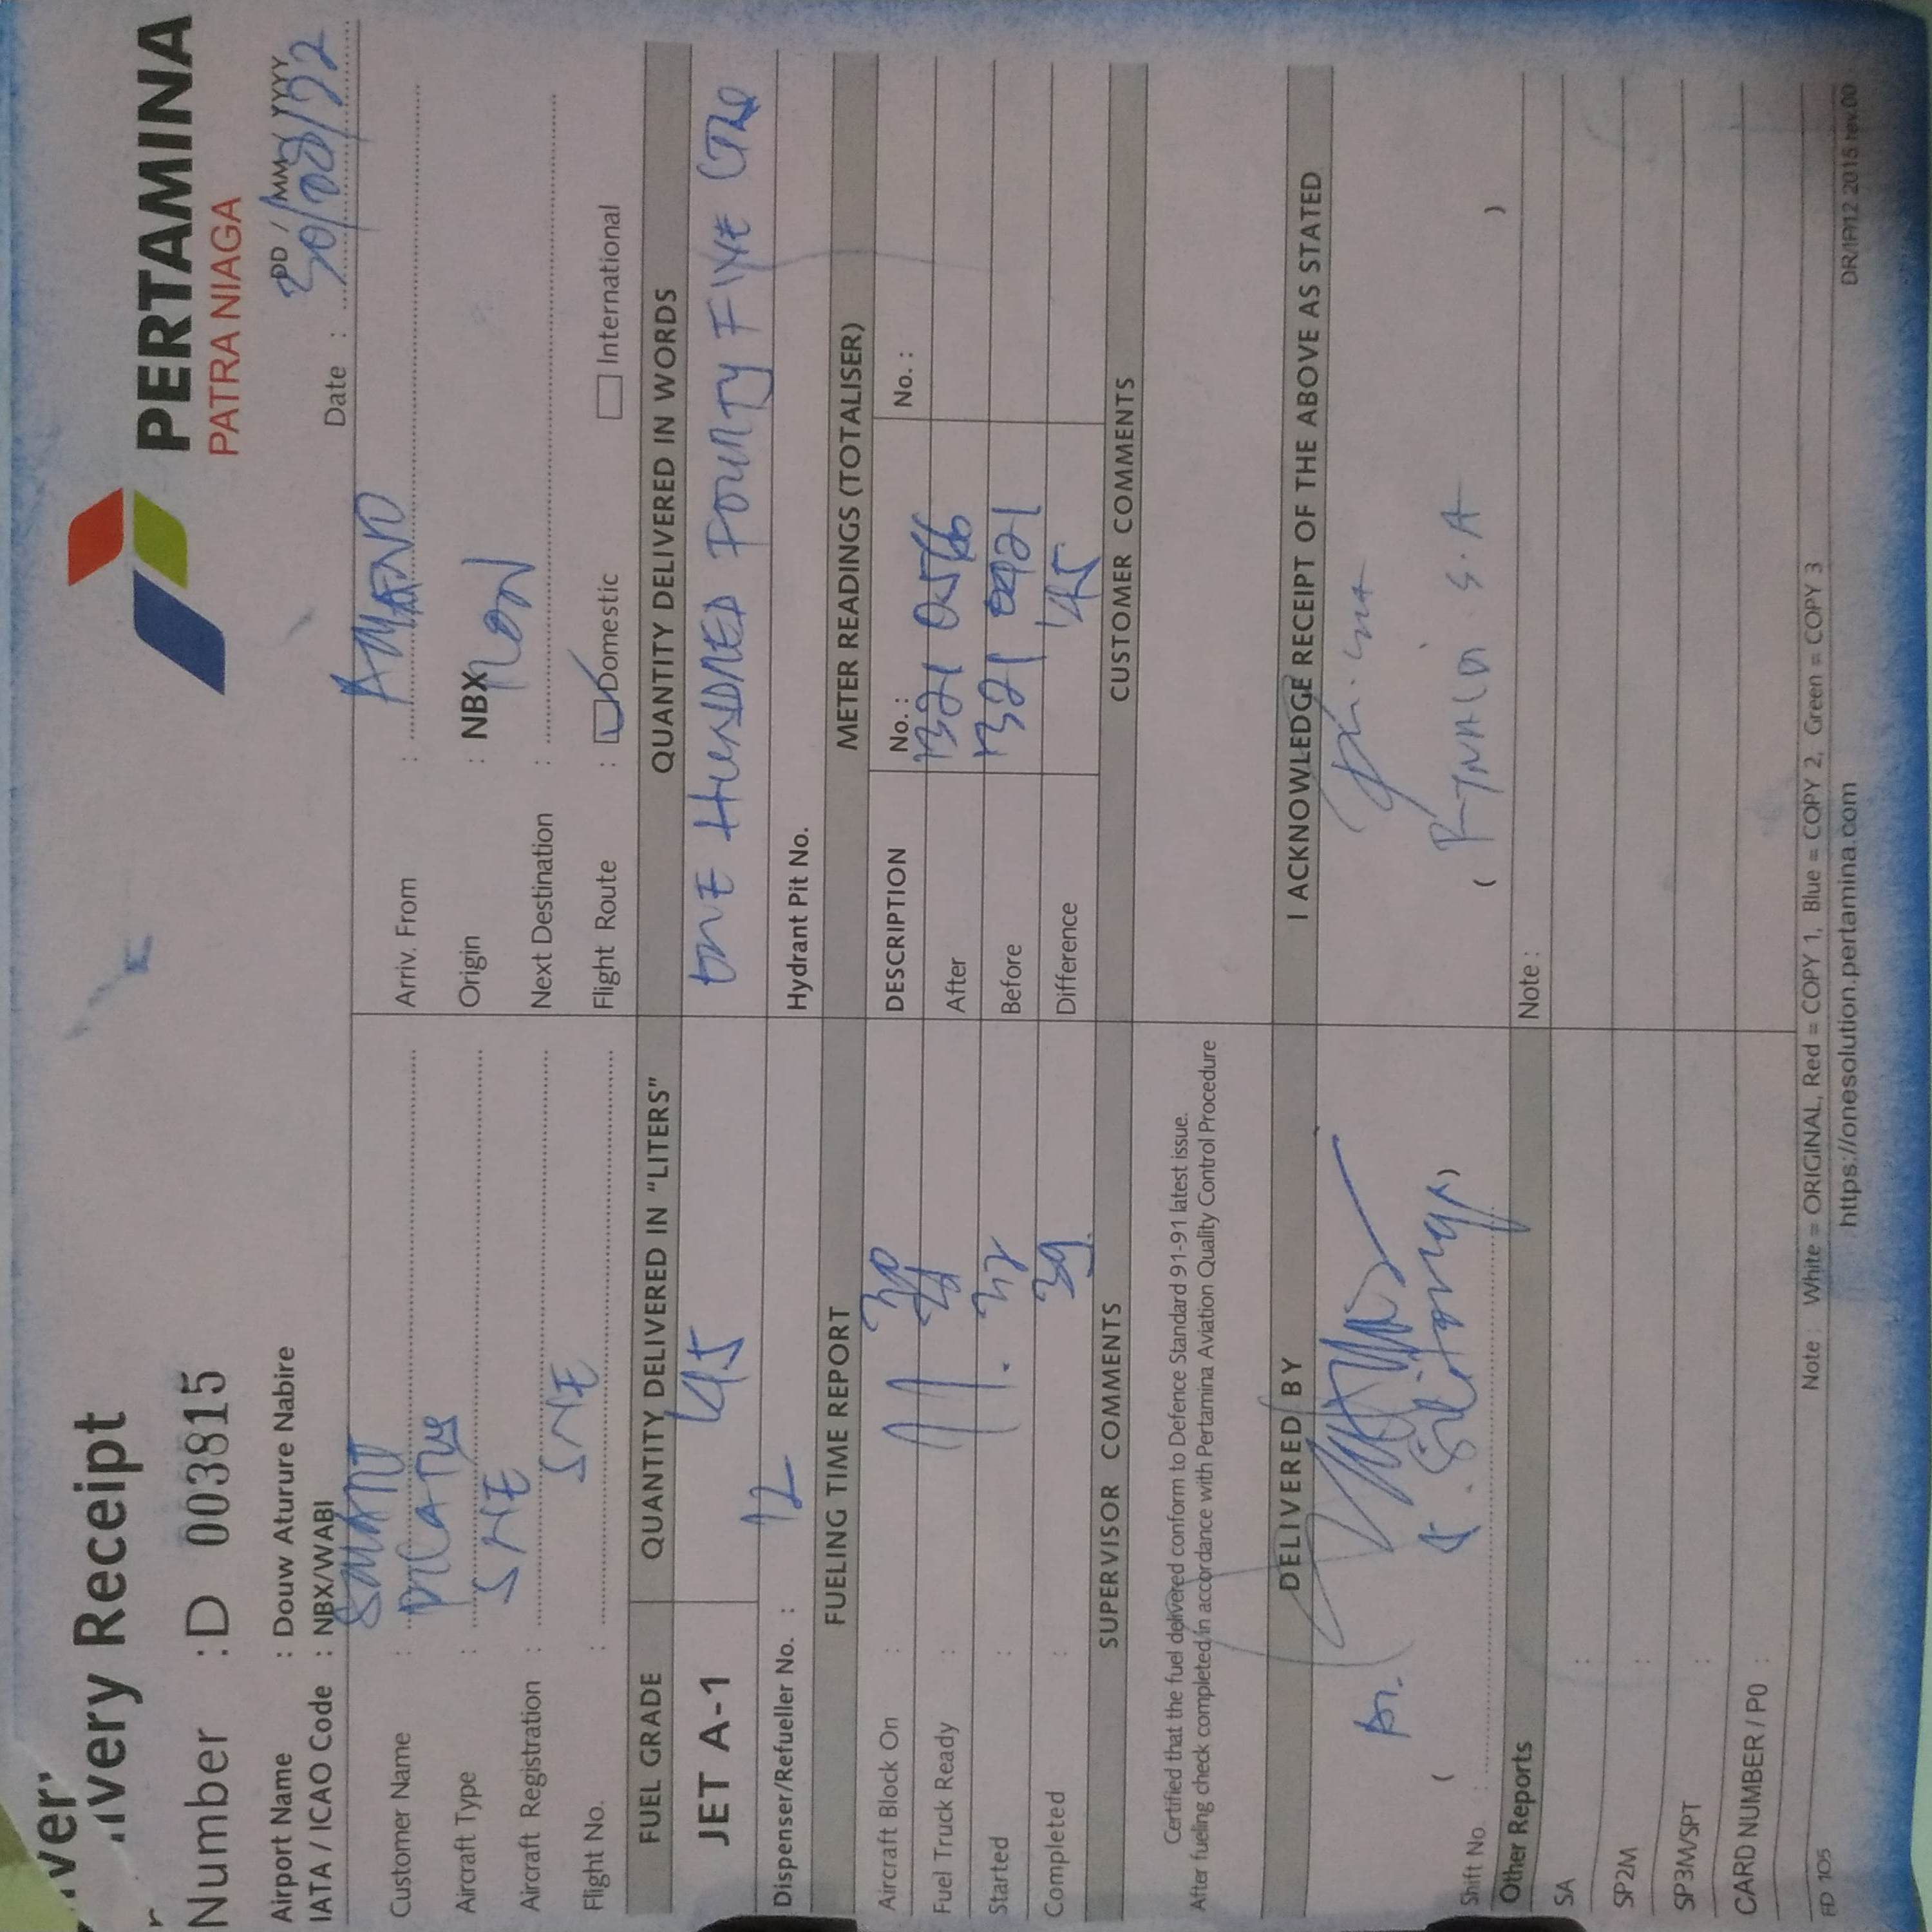 PERTAMINA
PATRA NIAGA
Delivery Receipt
Number : D 003815
DD / MM / YYYY
Date : 30/08/22
Airport Name : Douw Aturure Nabire
IATA / ICAO Code : NBX/WABI
Customer Name : SMART
Aircraft Type :
Aircraft Registration : SNE
Flight No. : SNE
Arriv. From :
Origin : NBX
Next Destination :
Flight Route : Domestic International
FUEL GRADE QUANTITY DELIVERED IN "LITERS" QUANTITY DELIVERED IN WORDS
JET A-1 145 ONE HUNDRED FOURTY FIVE
Dispenser/Refueller No. : 12 Hydrant Pit No.
FUELING TIME REPORT METER READINGS (TOTALISER)
Aircraft Block On : 30 DESCRIPTION No. : No. :
Fuel Truck Ready : 11 After 1321 0566
Started : 32 Before 1321 0421
Completed : 39 Difference 145
SUPERVISOR COMMENTS CUSTOMER COMMENTS
Certified that the fuel delivered conform to Defence Standard 91-91 latest issue.
After fueling check completed in accordance with Pertamina Aviation Quality Control Procedure
DELIVERED BY I ACKNOWLEDGE RECEIPT OF THE ABOVE AS STATED
( ) ( S.A )
Shift No. :
Other Reports Note :
SA :
SP2M :
SP3M/SPT :
CARD NUMBER / P0 :
FD 105 Note : White = ORIGINAL, Red = COPY 1, Blue = COPY 2, Green = COPY 3
https://onesolution.pertamina.com
2015 rev.00